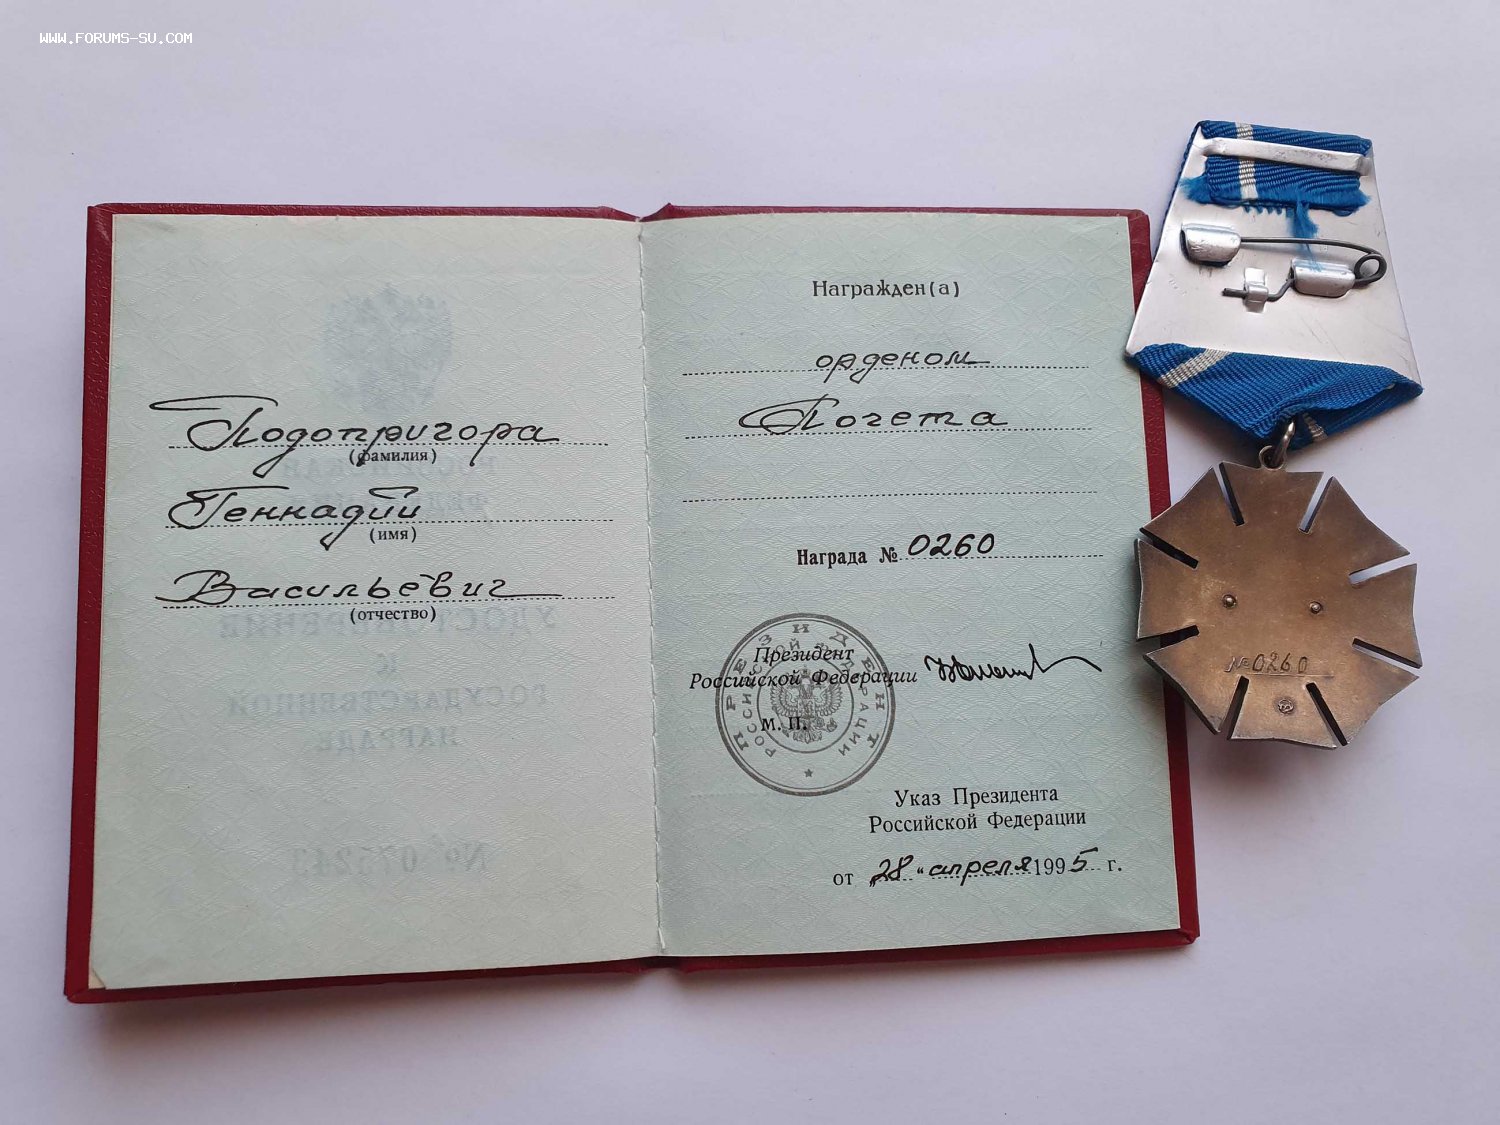 WWW.FORUMS-SU.COM
Подопригора
(фамилия)
Геннадий
(имя)
Васильевич
(отчество)
Награжден(а)
орденом
Почета
Награда № 0260
ПРЕЗИДЕНТ
РОССИЙСКОЙ ФЕДЕРАЦИИ
Президент
Российской Федерации
м. п.
Указ Президента
Российской Федерации
от „28 “ апреля 1995 г.
№0260
РОССИЙСКАЯ
ФЕДЕРАЦИЯ
УДОСТОВЕРЕНИЕ
К
ГОСУДАРСТВЕННОЙ
НАГРАДЕ